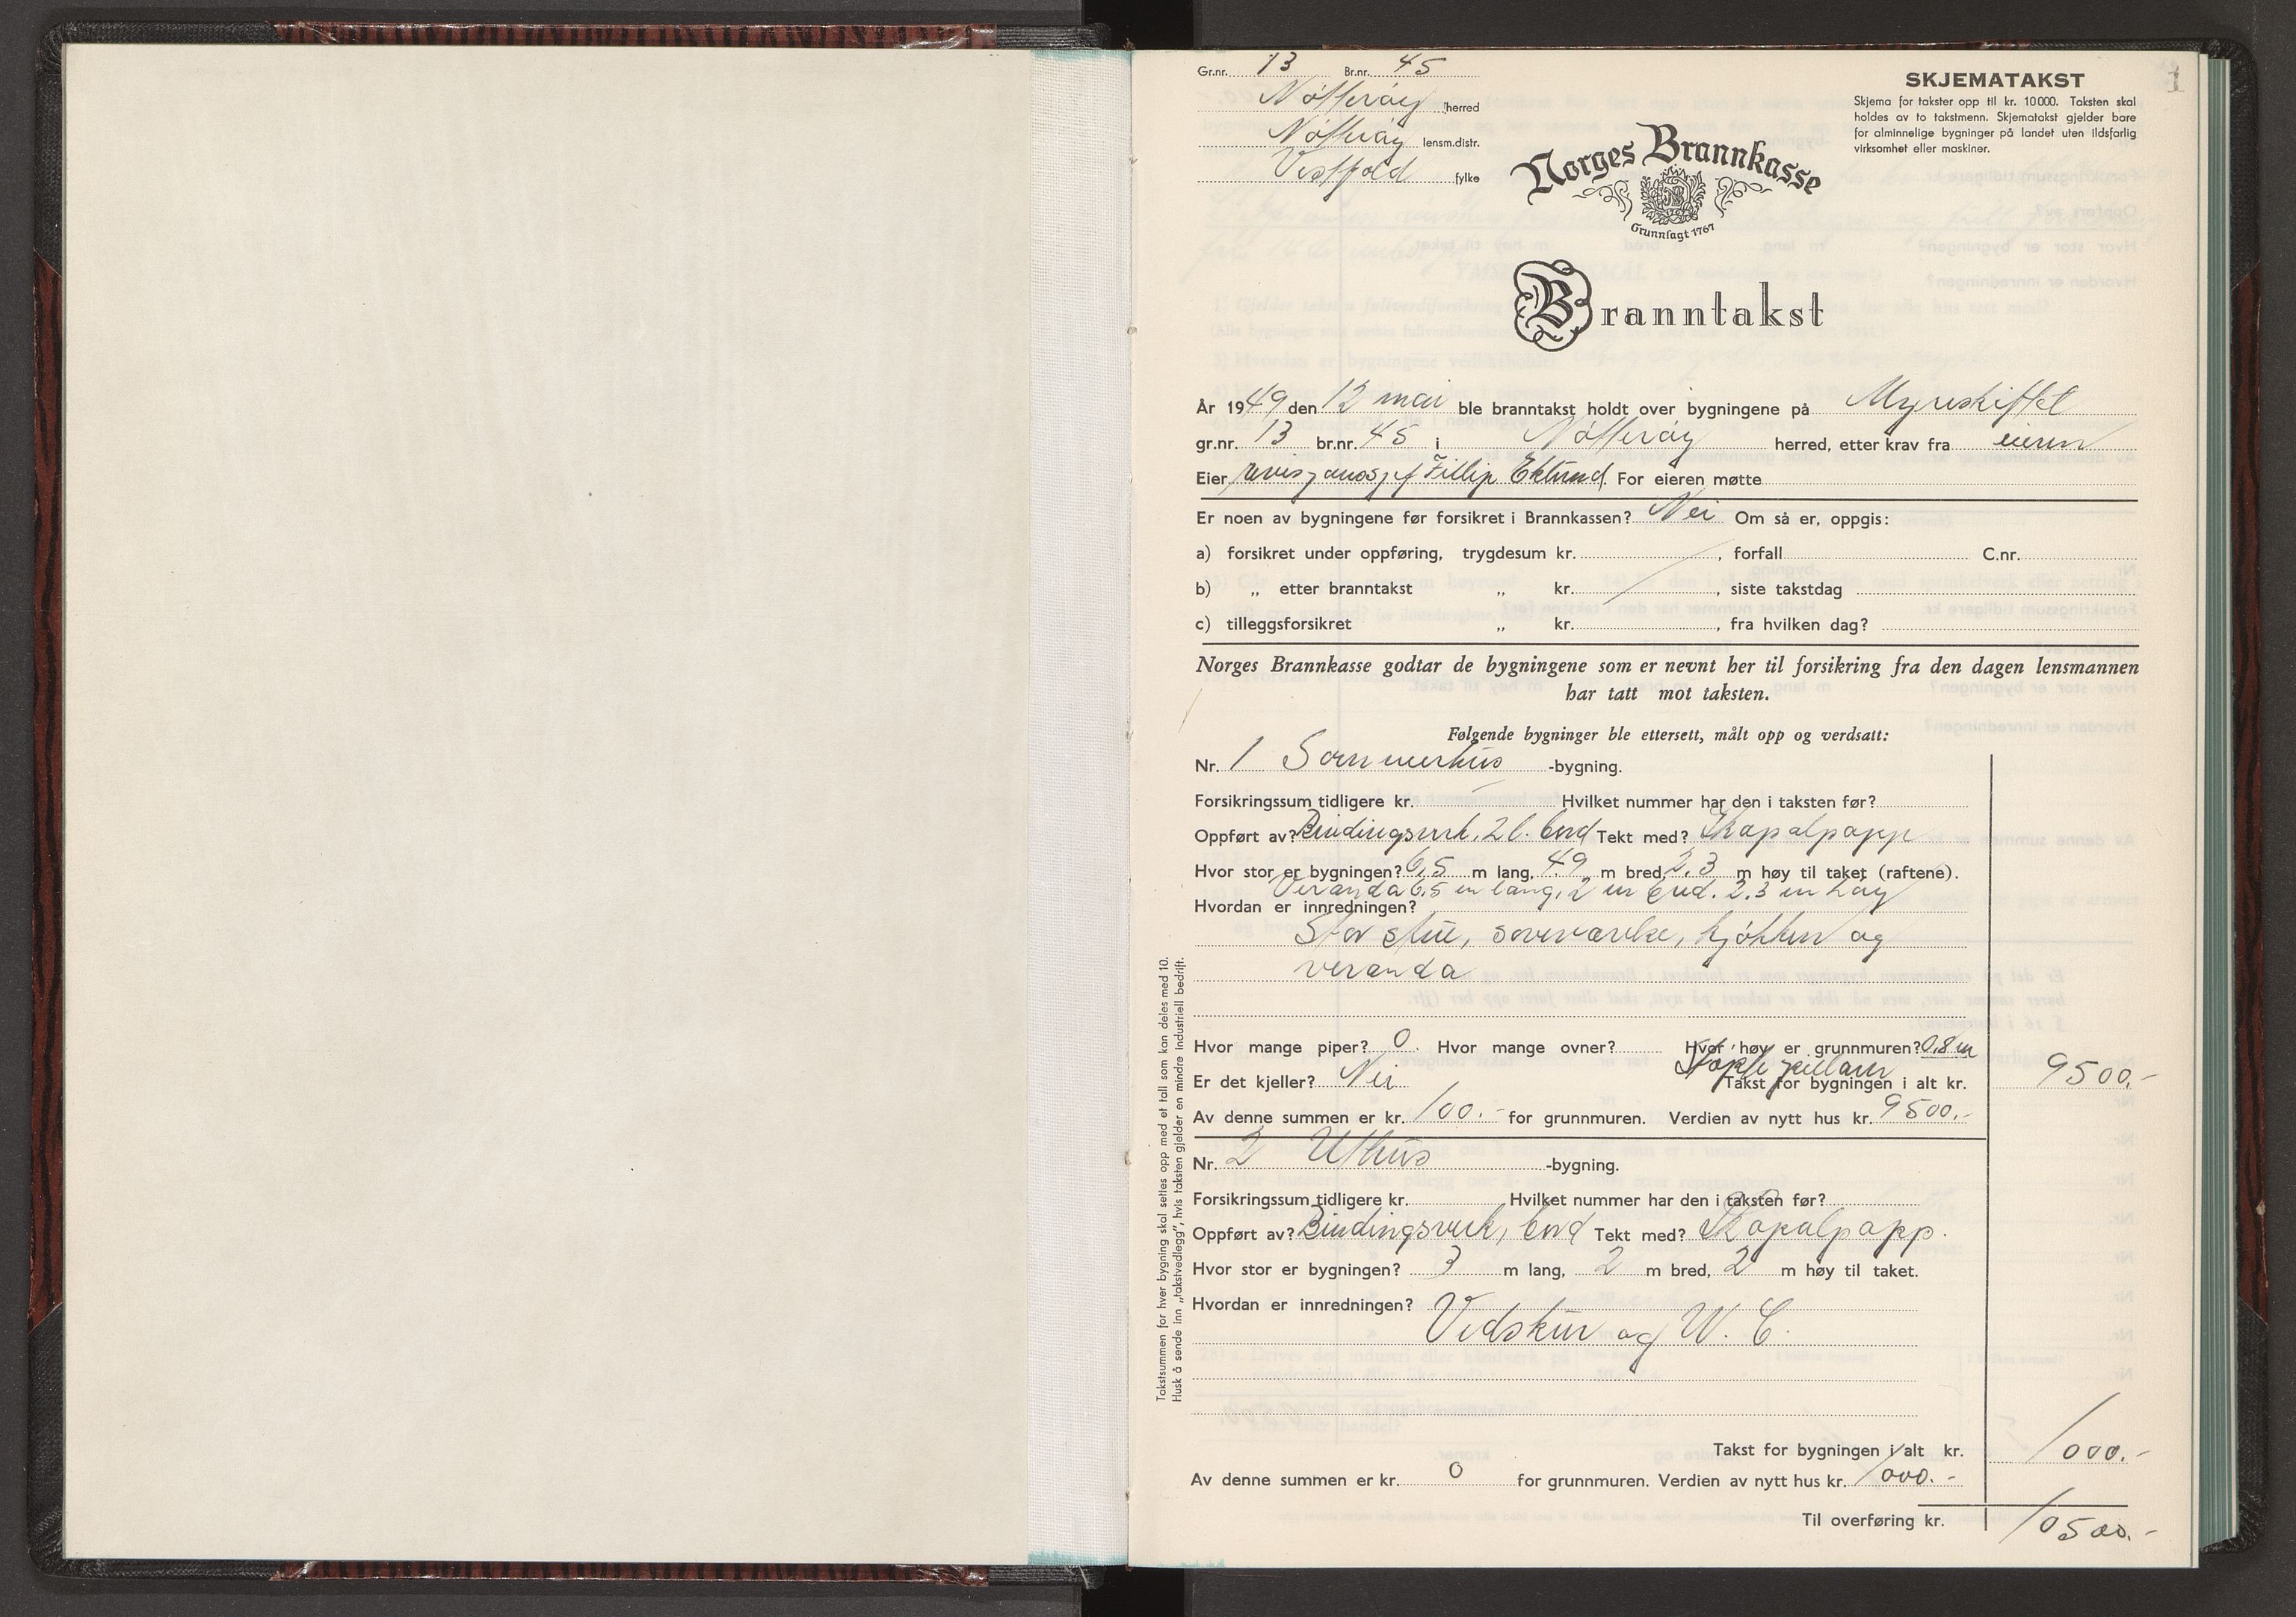 Gr.nr. 13 Br.nr. 45
Nøtterøy herred
Nøtterøy lensm.distr.
Vestfold fylke
SKJEMATAKST
Skjema for takster opp til kr. 10000. Taksten skal
holdes av to takstmenn. Skjematakst gjelder bare
for alminnelige bygninger på landet uten ildsfarlig
virksomhet eller maskiner.
1
Norges Brannkasse
Grunnlagt 1767
Branntakst
År 1949 den 12 mai ble branntakst holdt over bygningene på Myreskiftet
gr.nr. 13 br.nr. 45 i Nøtterøy herred, etter krav fra eieren
Eier Fillip Eklund. For eieren møtte
Er noen av bygningene før forsikret i Brannkassen? Nei Om så er, oppgis:
a) forsikret under oppføring, trygdesum kr. , forfall C.nr.
b) „ etter branntakst „ kr. , siste takstdag
c) tilleggsforsikret „ kr. , fra hvilken dag?
Norges Brannkasse godtar de bygningene som er nevnt her til forsikring fra den dagen lensmannen
har tatt mot taksten.
Følgende bygninger ble ettersett, målt opp og verdsatt:
Nr. 1 Sommerhus -bygning.
Forsikringssum tidligere kr. Hvilket nummer har den i taksten før?
Oppført av? Bindingsverk, 2 l. bord Tekt med? Skapalpapp
Hvor stor er bygningen? 6,5 m lang, 4.9 m bred, 2.3 m høy til taket (raftene).
Veranda 6,5 m lang, 2 m bred. 2.3 m høy
Hvordan er innredningen?
Stor stue, soveværelse, kjøkken og
veranda
Hvor mange piper? 0. Hvor mange ovner? Hvor høy er grunnmuren? 0,8 m
Støpte pillarer
Er det kjeller? Nei Takst for bygningen i alt kr. 9500.-
Av denne summen er kr. 100.- for grunnmuren. Verdien av nytt hus kr. 9500.-
Nr. 2 Uthus -bygning.
Forsikringssum tidligere kr. Hvilket nummer har den i taksten før?
Oppført av? Bindingsverk, bord Tekt med? Skapalpapp.
Hvor stor er bygningen? 3 m lang, 2 m bred, 2 m høy til taket.
Hvordan er innredningen?
Vedskur og W. C.
Takst for bygningen i alt kr. 1000.-
Av denne summen er kr. 0 for grunnmuren. Verdien av nytt hus kr. 1000.-
Til overføring kr. 10500.-
Takstsummen for hver bygning skal settes opp med et tall som kan deles med 10.
Husk å sende inn „takstvedlegg", hvis taksten gjelder en mindre industriell bedrift.